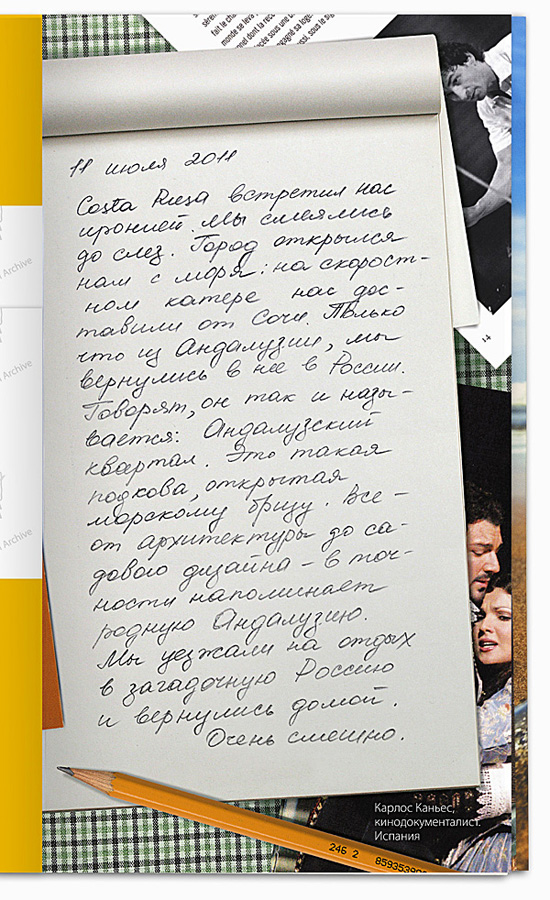 11 июля 2011
Costa Rusa встретил нас
иронией. Мы смеялись
до слез. Город открылся
нам с моря: на скорост-
ном катере нас дос-
тавили от Сочи. Только
что из Андалузии, мы
вернулись в нее в России.
Говорят, он так и назы-
вается: Андалузский
квартал. Это такая
подкова, открытая
морскому бризу. Все –
от архитектуры до са-
дового дизайна – в точ-
ности напоминает
родную Андалузию.
Мы уезжали на отдых
в загадочную Россию
и вернулись домой.
Очень смешно.
Карлос Каньес,
кинодокументалист.
Испания
246 2
Archive
Archive
Archive
14